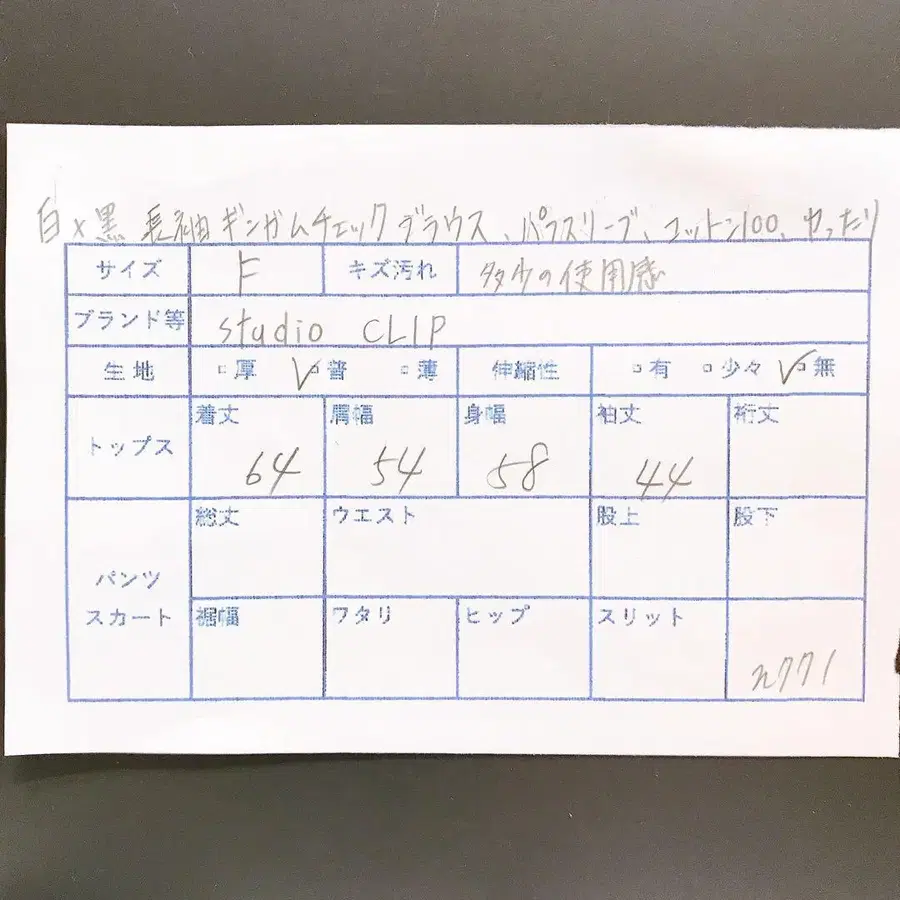 白×黒 長袖ギンガムチェックブラウス、パフスリーブ、コットン100、ゆったり
サイズ F キズ汚れ 多少の使用感
ブランド等 studio CLIP
生地 □厚 ✓□普 □薄 伸縮性 □有 □少々 ✓□無
トップス 着丈 64 肩幅 54 身幅 58 袖丈 44 裄丈
パンツ スカート 総丈 ウエスト 股上 股下
裾幅 ワタリ ヒップ スリット n771